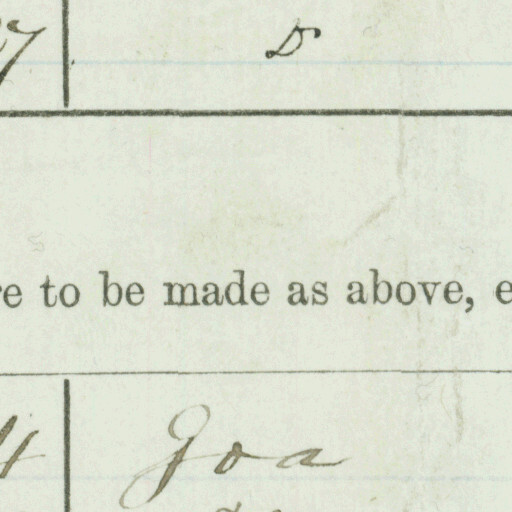 7 D
re to be made as above, e
4 Goa